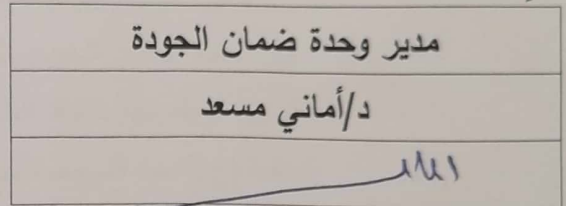 مدير وحدة ضمان الجودة
د/أماني مسعد